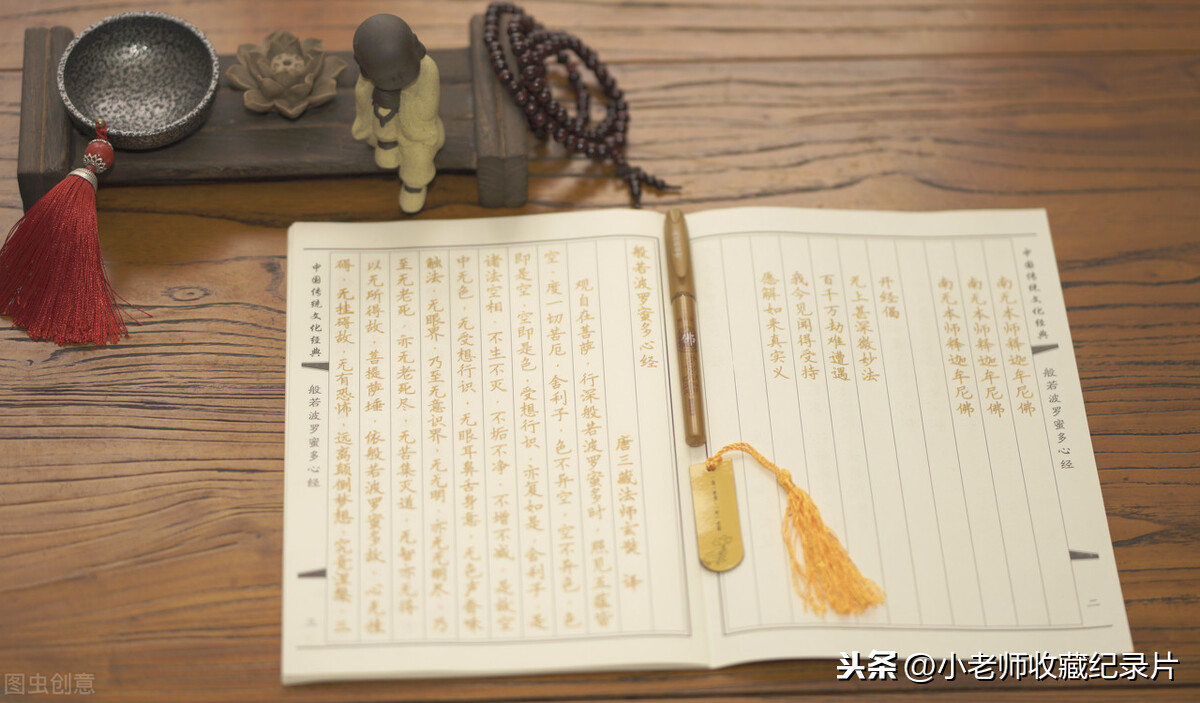 中国传统文化经典
般若波罗蜜多心经
南无本师释迦牟尼佛
南无本师释迦牟尼佛
南无本师释迦牟尼佛
开经偈
无上甚深微妙法
百千万劫难遭遇
我今见闻得受持
愿解如来真实义
二
佛
般若波罗蜜多心经
唐三藏法师玄奘 译
观自在菩萨，行深般若波罗蜜多时，照见五蕴皆
空，度一切苦厄，舍利子，色不异空，空不异色，色
即是空，空即是色，受想行识，亦复如是，舍利子，是
诸法空相，不生不灭，不垢不净，不增不减，是故空
中无色，无受想行识，无眼耳鼻舌身意，无色声香味
触法，无眼界，乃至无意识界，无无明，亦无无明尽，乃
至无老死，亦无老死尽，无苦集灭道，无智亦无得
以无所得故，菩提萨埵，依般若波罗蜜多故，心无挂
碍，无挂碍故，无有恐怖，远离颠倒梦想，究竟涅槃，三
中国传统文化经典
般若波罗蜜多心经
三
图虫创意
头条 @小老师收藏纪录片